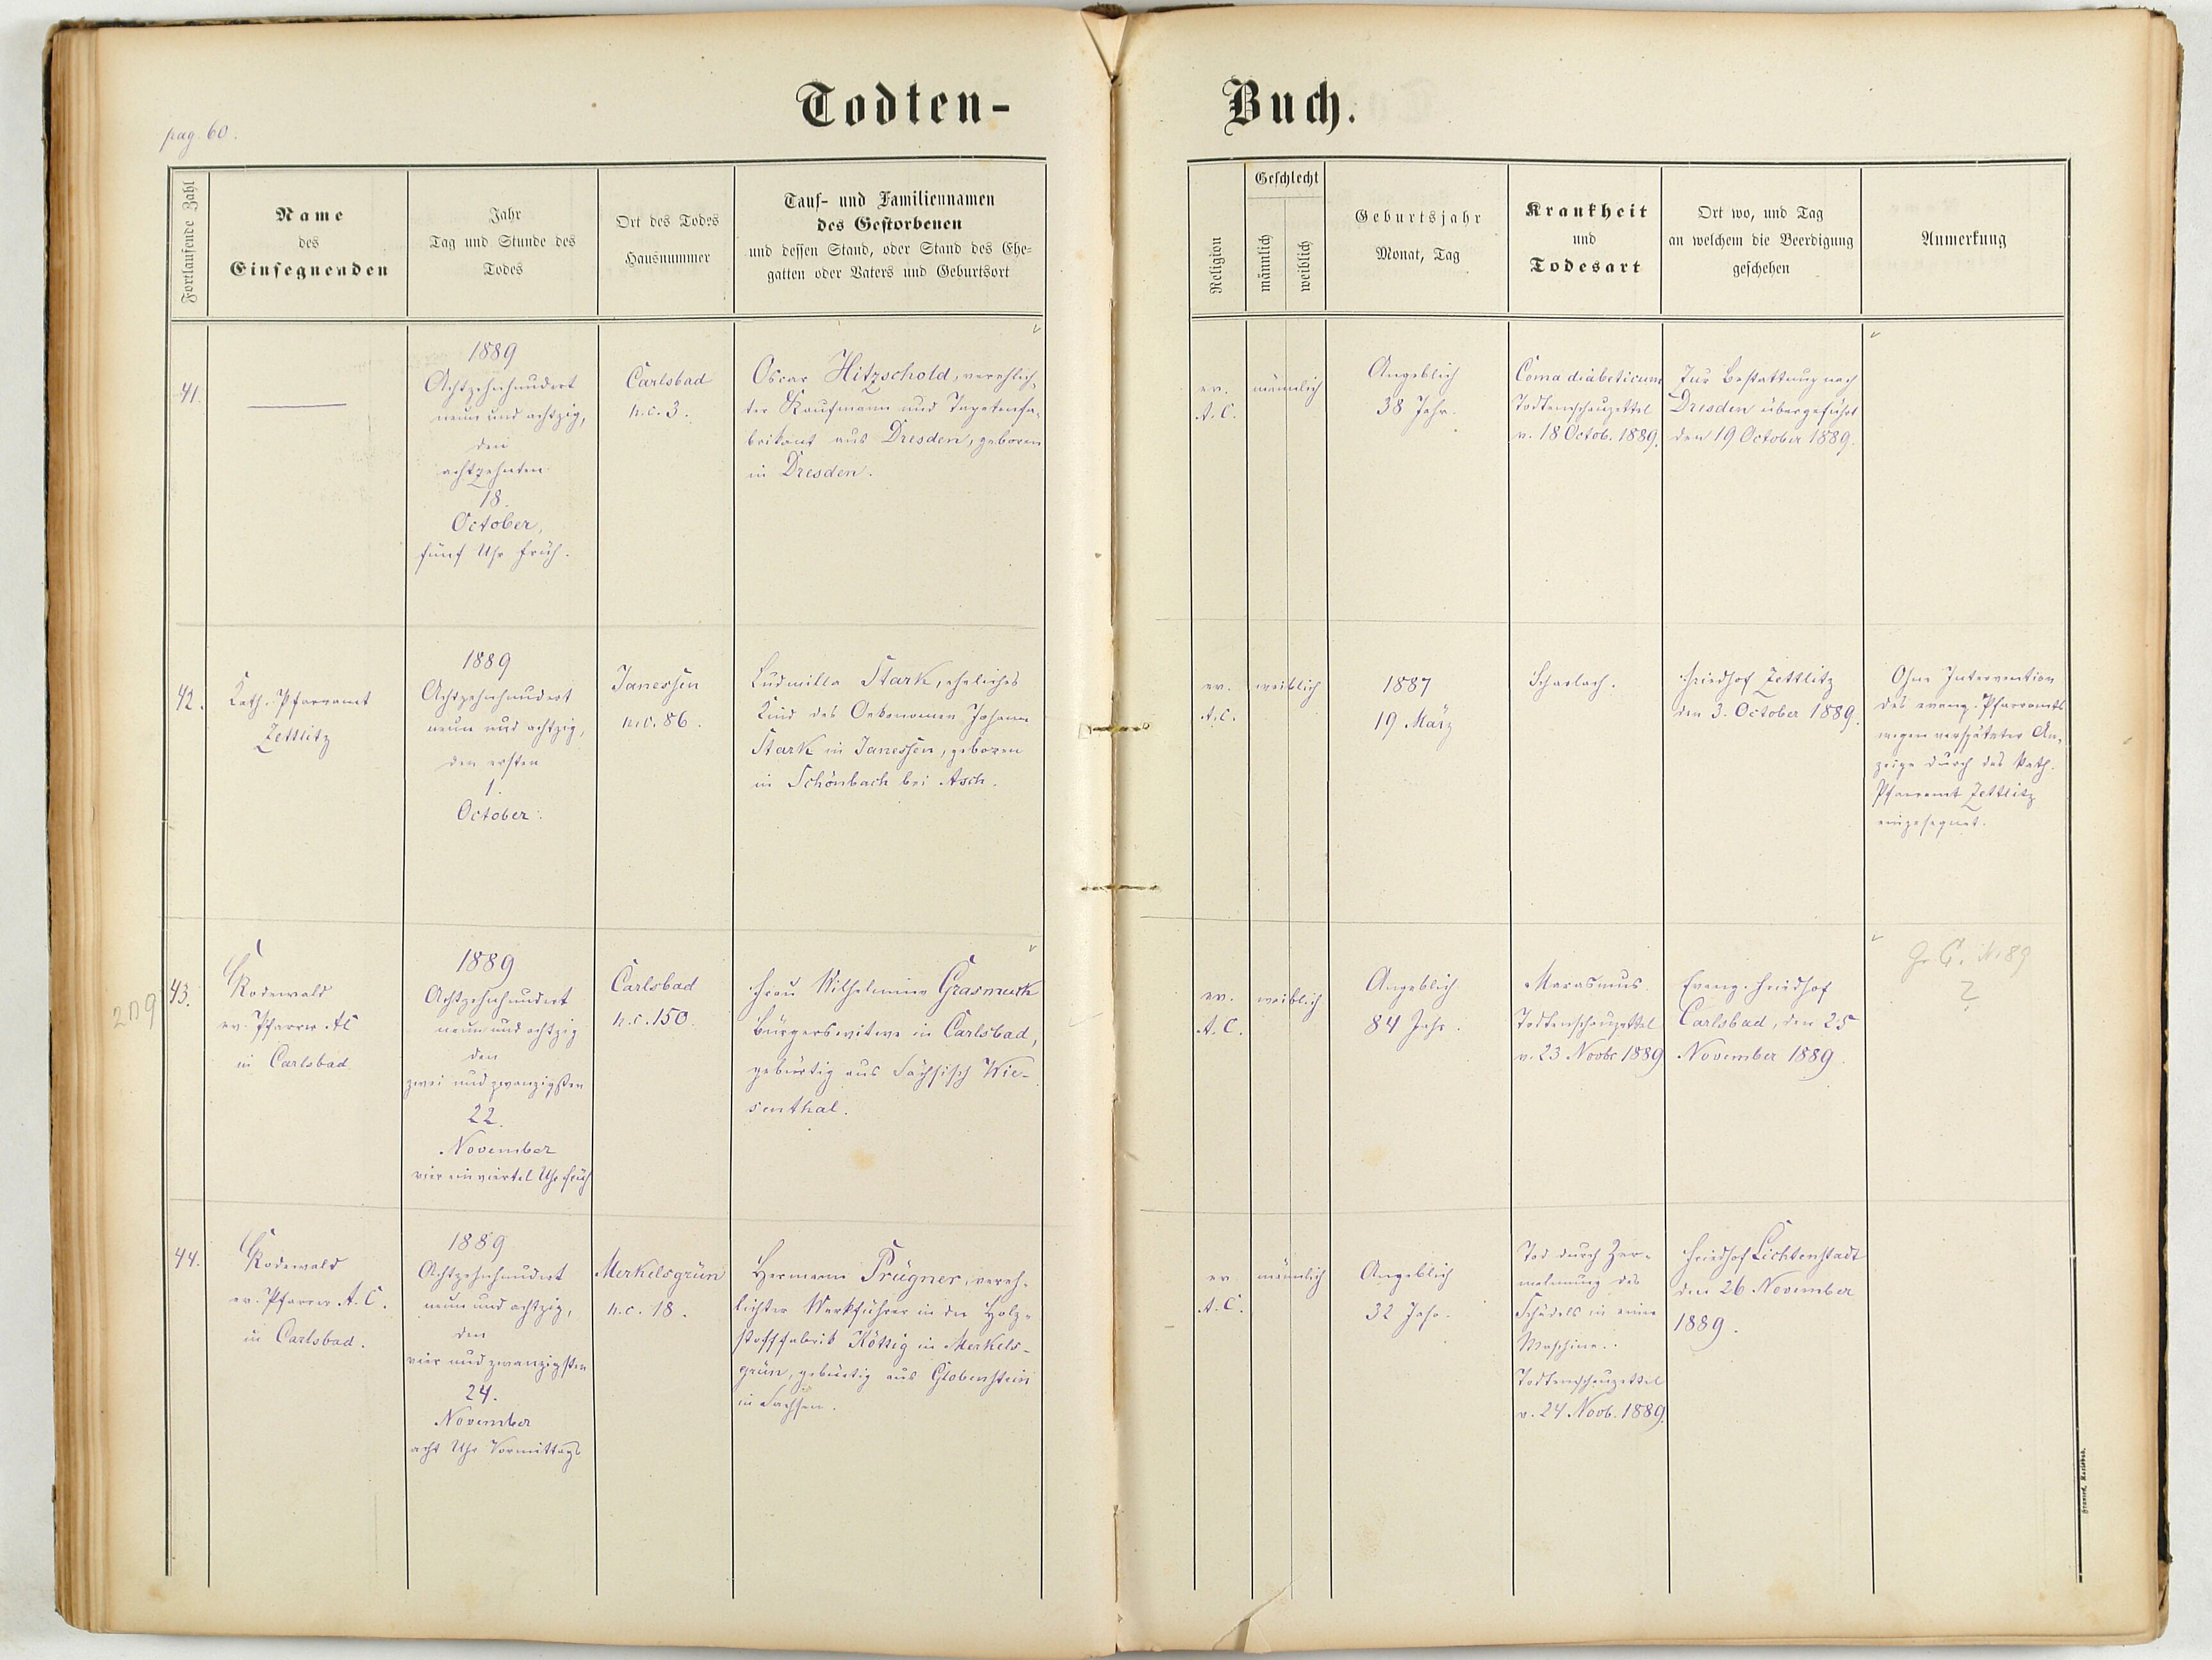 pag. 60.
Todten-
Buch.
Fortlaufende Zahl
Name
des
Einsegnenden
Jahr
Tag und Stunde des
Todes
Ort des Todes
Hausnummer
Tauf- und Familiennamen
des Gestorbenen
und dessen Stand, oder Stand des Ehe-
gatten oder Vaters und Geburtsort
Religion
Geschlecht
männlich
weiblich
Geburtsjahr
Monat, Tag
Krankheit
und
Todesart
Ort wo, und Tag
an welchem die Beerdigung
geschehen
Anmerkung
41.
1889
Achtzehnhundert
neun und achtzig,
den
achtzehnten
18.
October,
fünf Uhr früh.
Carlsbad
n.c. 3.
Oscar Hitzschold, verehlich-
ter Kaufmann und Tapetenfa-
brikant aus Dresden, geboren
in Dresden.
ev.
A.C.
männlich
Angeblich
38 Jahr.
Coma diabeticum
Todtenschauzettel
v. 18 Octob. 1889.
Zur Bestattung nach
Dresden übergeführt
den 19 October 1889.
42.
Kath. Pfarramt
Zettlitz
1889
Achtzehnhundert
neun und achtzig,
den ersten
1.
October.
Janessen
n.c. 86.
Ludmilla Stark, eheliches
Kind des Oekonomen Johann
Stark in Janessen, geboren
in Schönbach bei Asch.
ev.
A.C.
weiblich
1887
19 März
Scharlach.
Friedhof Zettlitz
den 3. October 1889.
Ohne Intervention
des evang. Pfarramts
wegen verspäteter An-
zeige durch das kath.
Pfarramt Zettlitz
eingesegnet.
209
43.
Rodewald
ev. Pfarrer AC
in Carlsbad
1889
Achtzehnhundert
neun und achtzig
den
zwei und zwanzigsten
22.
November
vier ein viertel Uhr früh
Carlsbad
n.c. 150.
Frau Wilhelmine Grasmuck
Bürgerswitwe in Carlsbad,
gebürtig aus Sächsisch Wie-
senthal.
ev.
A.C.
weiblich
Angeblich
84 Jahr.
Marasmus.
Todtenschauzettel
v. 23 Novbr 1889
Evang. Friedhof
Carlsbad, den 25
November 1889.
Gr. C. N. 89
?
44.
Rodewald
ev. Pfarrer A.C.
in Carlsbad.
1889
Achtzehnhundert
neun und achtzig,
den
vier und zwanzigsten
24.
November
acht Uhr Vormittags
Merkelsgrün
n.c. 18.
Hermann Prügner, vereh-
lichter Werkführer in der Holz-
stofffabrik in Merkels-
grün, gebürtig aus Globenstein
in Sachsen.
ev.
A.C.
männlich
Angeblich
32 Jahr.
Tod durch Zer-
malmung des
Schädels in einer
Maschine.
Todtenschauzettel
v. 24 Novb. 1889.
Friedhof Lichtenstadt
den 26 November
1889.